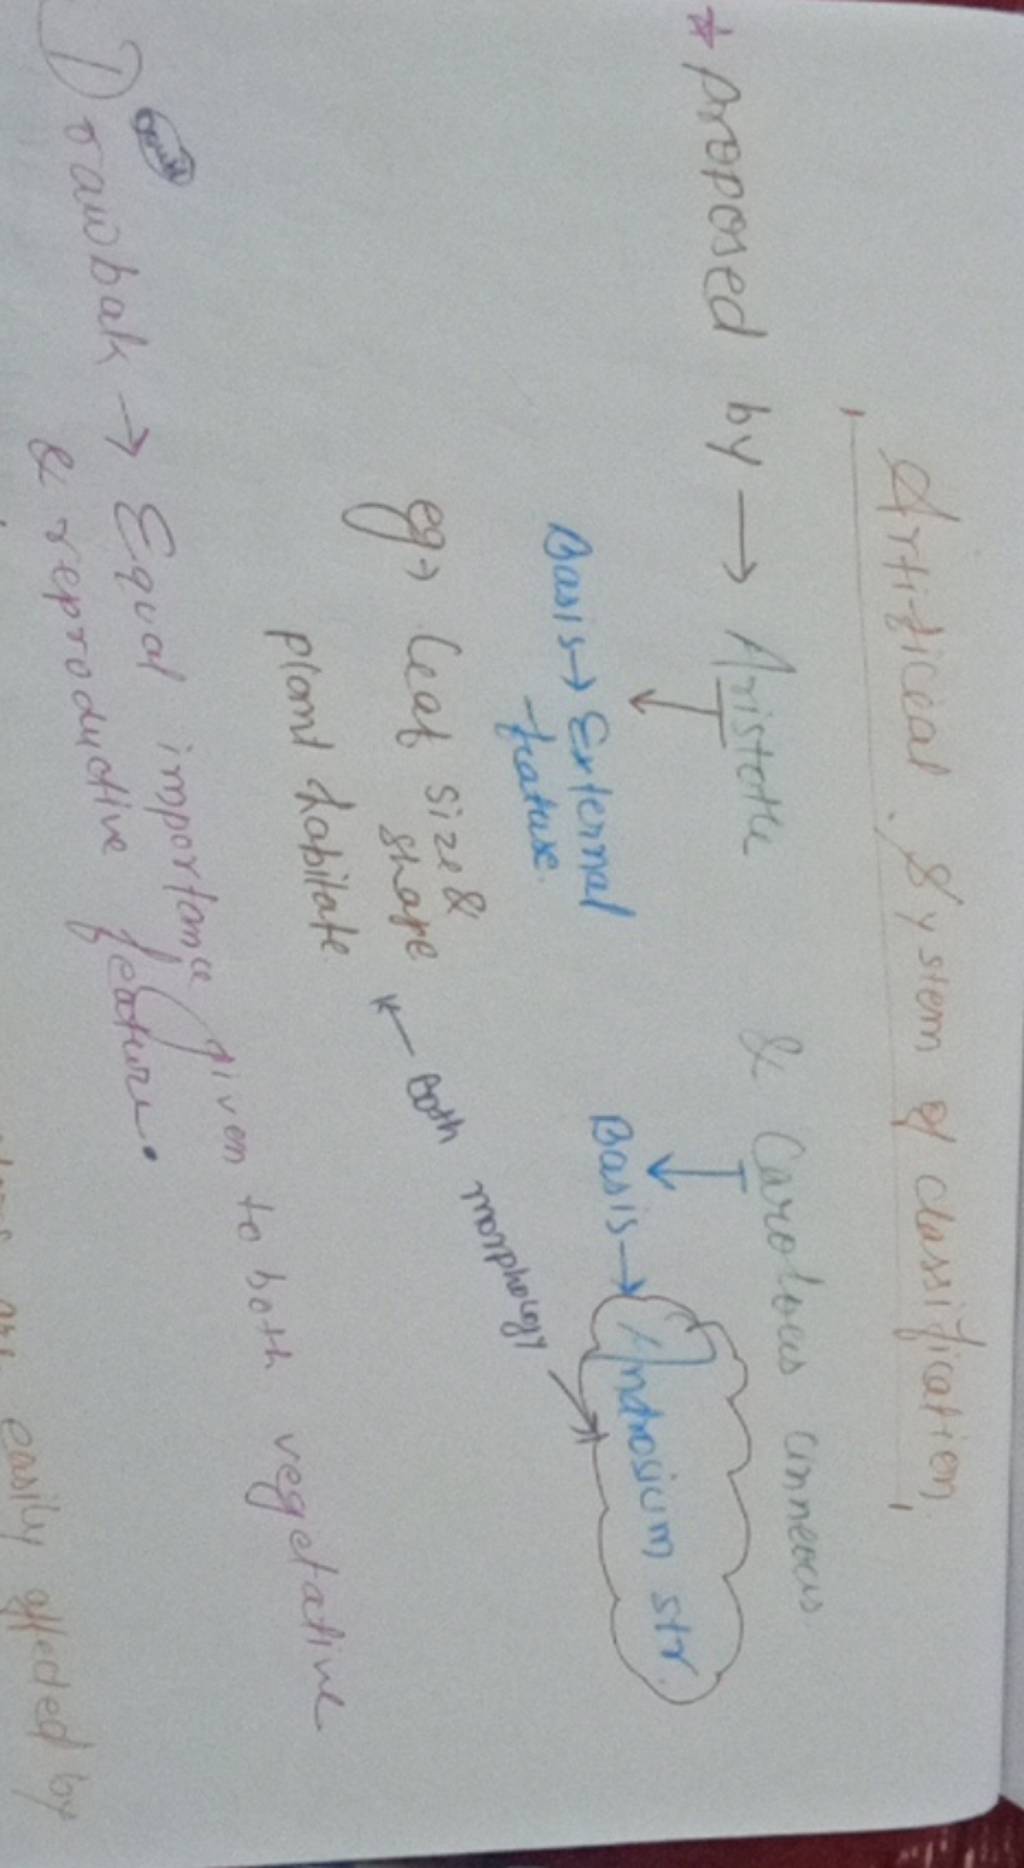 Artificeal System of classification
* proposed by → Aristotle & Carolous linneous
Basis → External
feature.
Basis → Androsium str.
eg → Leaf size &
shape
plant habitate
Both morphology
Drawbak → Equal importance given to both vegetative
& reproductive feature.
easily affected by